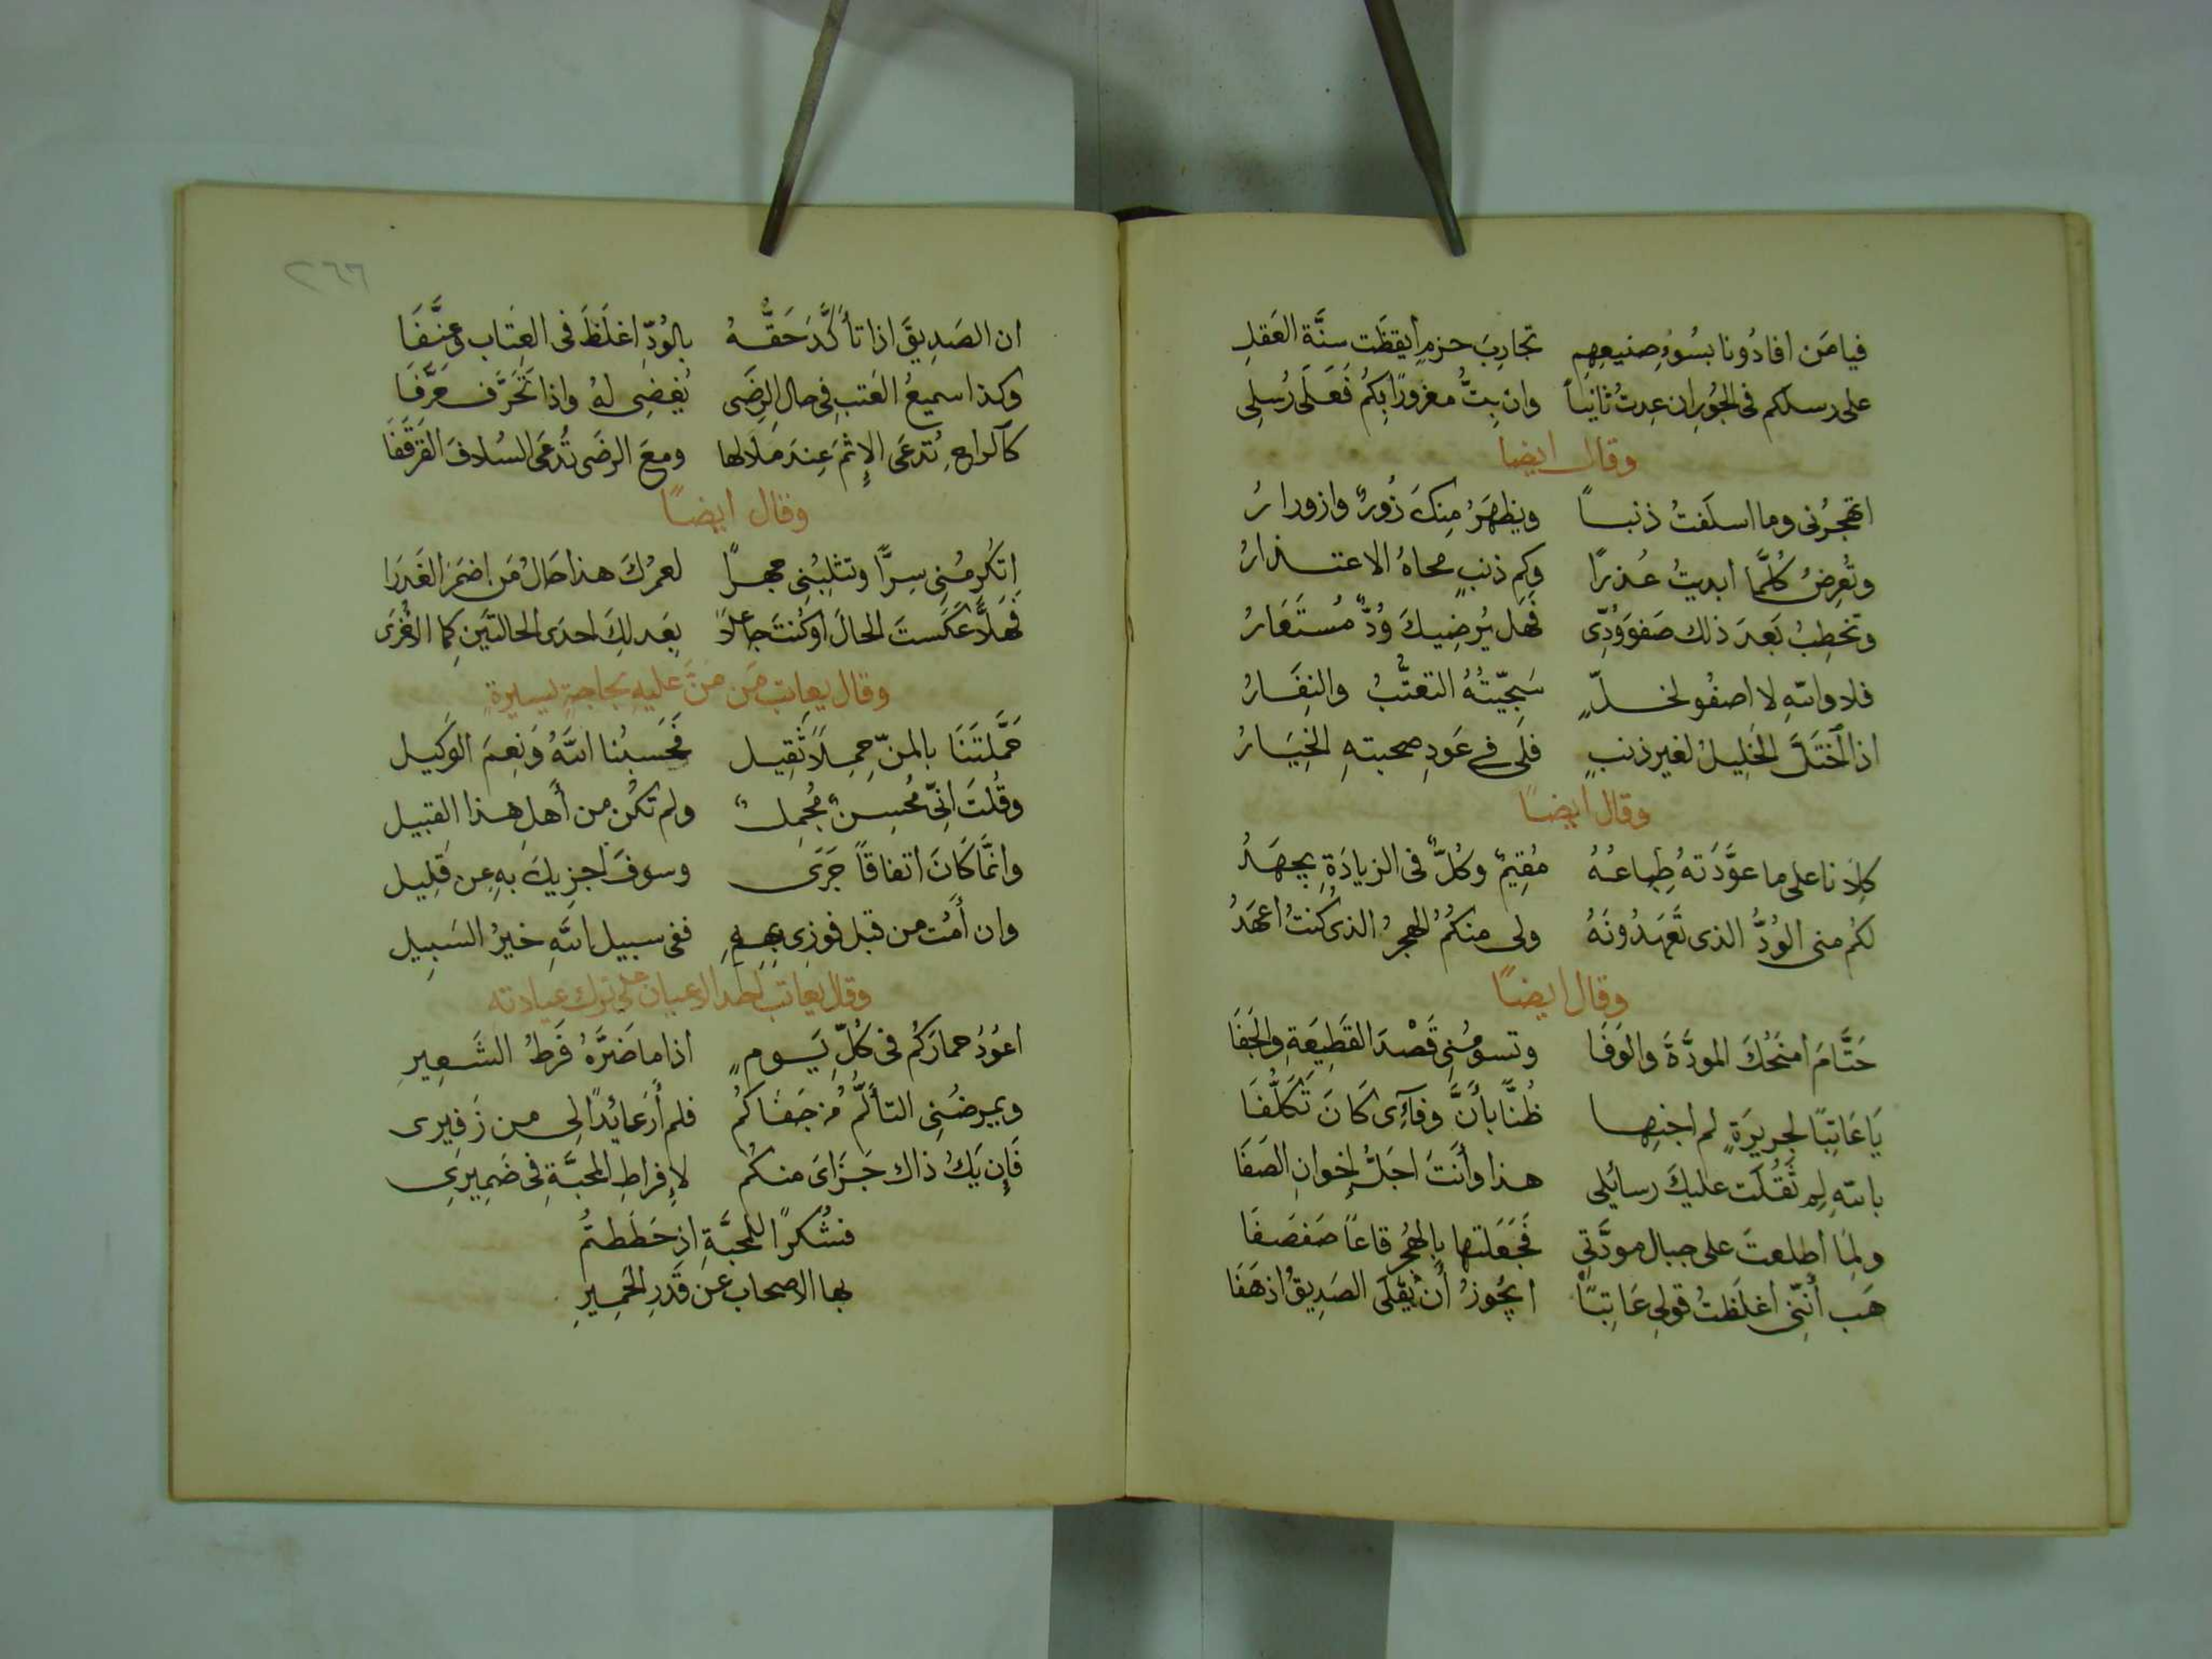 فيا مَن افادُونا بسُوءِ صنيعِهِم تجارِبَ حزمٍ أيقظَت سنَّة العَقلِ
على رسلكم فى الجَورِ ان عدتُ ثانيـاً وان بِتُّ مغرورًا بكُم فَعَلَى رُسلى
وقال ايضا
اتهجرُنى وما اسلَفتُ ذنبـاً ويظهَرُ مِنكَ زُورٌ وازورارُ
وتُعرِضُ كُلَّما ابديتُ عُـذرًا وكم ذنبٍ محاهُ الاعتـذارُ
وتخطِبُ بَعدَ ذلك صَفوَ وُدِّى فَهَل يُرضِيكَ وُدٌّ مُستَعَارُ
فلا واللهِ لا اصفُو لخـلٍّ سَجِيّتُهُ التعتُّبُ والنِفَـارُ
اذا اختَلَّ الخَلِيلُ لغير ذنبٍ فلى فى عَودِ صحبتهِ الخِيَـارُ
وقال ايضـاً
كِلاَنا على ما عوَّدَتهُ طِباعُـهُ مُقِيمٌ وكُلٌّ فى الزيادَةِ يجهَدُ
لكُم منى الوُدُّ الذى تَعهَدُونَهُ ولى منكُمُ الهجرُ الذى كُنتُ اعهَدُ
وقال ايضـاً
حَتَّامَ امنَحُكَ المودَّةَ والوَفَا وتسومُنِى قَصْدَ القَطِيعَةِ والجَفَا
يَا عَاتِبًا لجريرَةٍ لم اجنِهـا ظُنَّا بأَنَّ وفآءِى كَانَ تَكَلُّفَا
باللهِ لِم ثَقُلَت عليكَ رسائلى هـذا وأنتَ اجَلُّ إخوانِ الصَفَا
ولِمَا أطلعتَ على جبال مودَّتى فَجَعَلتها بالهَجرِ قاعاً صَفصَفَا
هَب أنَّنِى اغلَظتُ قولى عَاتِبـاً ايجُوزُ أن يُقلَى الصَدِيقُ اذ هَفَا
٢٦٦
ان الصَدِيقَ اذا تأكَّدَ حَقُّـهُ بالوُدِّ اغلَظَ فى العِتابِ وعنَّفَا
وكذا سميعُ العَتبِ فى حال الرِضَى يُغضِى لهُ واذا تَحَرَّف حَرَّفَا
كالراحِ تُدعَى الإثمَ عِندَ مَلاَلها ومعَ الرضَى تُدعَى السُلافَ القَرقَفَا
وقال ايضـاً
اتكرِمُنِى سِرًّا وتثلِبُنِى جهـرًا لعمرُكَ هذا حَالُ مَن اضمَرَ الغَدرَا
فَهَلاَّ عَكَستَ الحالَ اوكُنتَ جاعلاً بعَدلِكَ احدَى الحالتَينِ كما الاُخرَى
وقال يعاتب مَن مَنَّ عليهِ بحاجةٍ يسيرةٍ
حَمَّلتَنَا بالمنِّ حِمـلاً ثَقِيـل فَحَسبُنا اللهُ وَنِعمَ الوَكيـل
وقُلتَ انِّى مُحسِـنٌ مُجمِـلٌ ولم تكُن من أهلِ هـذا القبيل
وانمَّا كَانَ اتفاقاً جَرَى وسوفَ اجزِيكَ بهِ عن قَلِيـل
وان أمُت من قبل فوزِى بهِ ففى سبيل اللهِ خيرُ السَبِيل
وقال يعاتب احد الاعيان على ترك عيادته
اعُودُ حمارَكُم فى كُلِّ يَـومٍ اذا ما ضَرَّهُ فَرطُ الشَـعِيرِ
ويمرضُنِى التألُّمُ من جَفَـاكُم فلم أرَ عائدًا لِى مـن زَفِيرى
فَإن يَكُ ذاك جَـزَاىَ منكُم لإفراطِ المحبَّةِ فى ضَمِيرى
فشُكرًا للمحبَّةِ اذ حَطَطتُم
بها الاصحاب عن قَدرِ الحَمِـيرِ